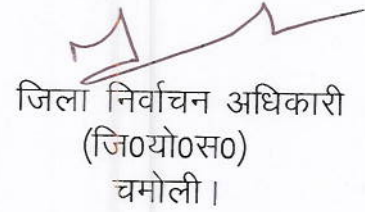 जिला निर्वाचन अधिकारी
(जि0यो0स0)
चमोली।